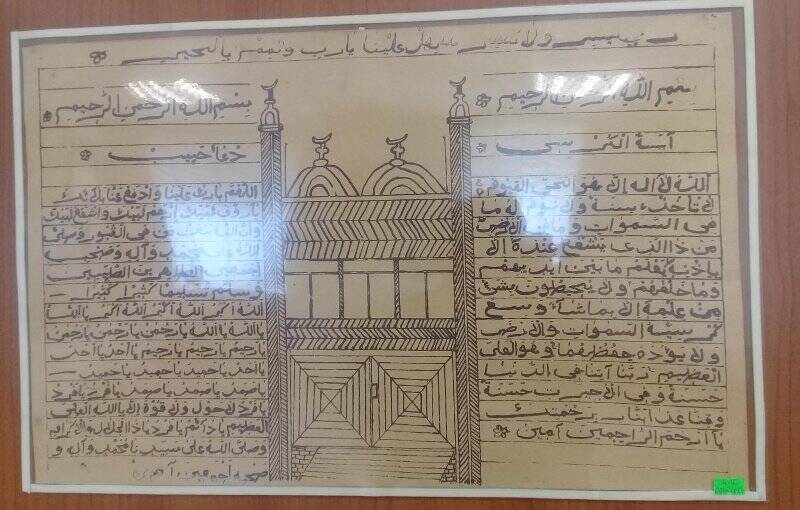 رب يسر ولا تعسر سهل علينا يارب وتمم بالخير
بسم الله الرحمن الرحيم
آية الكرسي
الله لا اله الا هو الحي القيوم
لا تأخذه سنة ولا نوم له ما
في السموات وما في الارض
من ذا الذي يشفع عنده الا
باذنه يعلم ما بين ايديهم
وما خلفهم ولا يحيطون بشئ
من علمه الا بما شاء وسع
كرسيه السموات والارض
ولا يؤده حفظهما وهو العلي
العظيم ربنا آتنا في الدنيا
حسنة وفي الاخرت حسنة
وقنا عذاب النار برحمتك
يا ارحم الراحمين آمين
بسم الله الرحمن الرحيم
دعاء حبيب
اللهم بارك علينا وادفع عنا
من في القبور وصلى
الله على محمد وآله وصحبه
اجمعين الطاهرين الطيبين
وسلم تسليما كثيرا كثيرا
الله اكبر الله اكبر الله اكبر يا الله
يا الله يا الله يا رحمن يا رحمن يا رحمن
يا رحيم يا رحيم يا رحيم يا احد يا احد
يا احد يا حميد يا حميد يا حميد
يا صمد يا صمد يا صمد يا فرد يا فرد
يا فرد لا حول ولا قوة الا بالله العلي
العظيم يا ذا الجلال والاكرام
وصلى الله على سيدنا محمد وآله و
صحبه اجمعين آمين